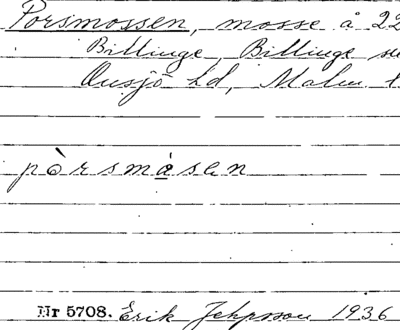 Porsmossen, mosse å 22
Billinge, Billinge
Onsjö hd, Malm
pòrsmåsen
Nr 5708. Erik Jeppsson 1936